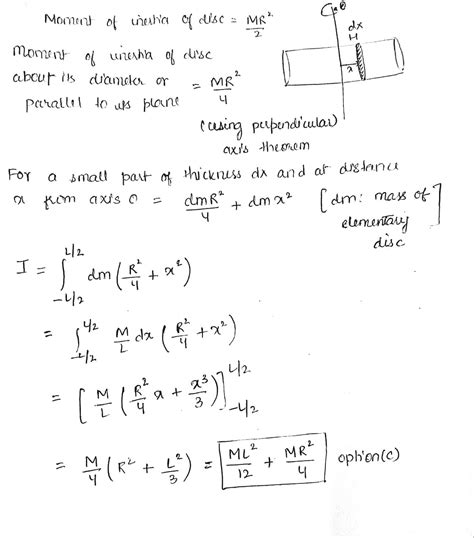 Moment of inertia of disc = MR²/2
Moment of inertia of disc
about its diameter or
parallel to its plane = MR²/4
(using perpendicular)
axis theorem
dx
x
For a small part of thickness dx and at distance
x from axis O = dmR²/4 + dmx² [dm: mass of
elementary
disc]
I = ∫_{-L/2}^{L/2} dm(R²/4 + x²)
= ∫_{-L/2}^{L/2} M/L dx (R²/4 + x²)
= [M/L (R²/4 x + x³/3)]_{-L/2}^{L/2}
= M/4 (R² + L²/3) = ML²/12 + MR²/4 option(c)